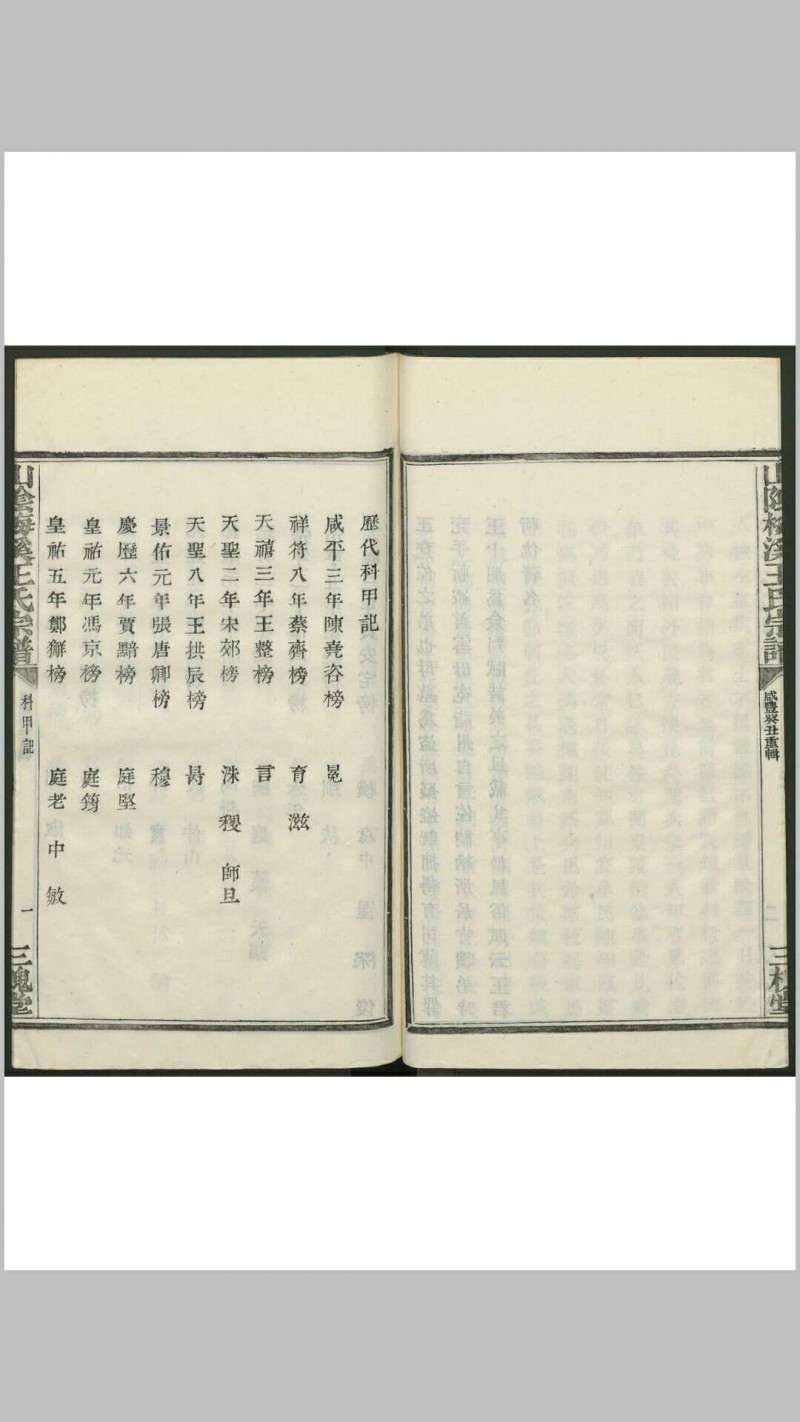 山陰梅溪王氏宗譜
咸豐癸丑重輯
二
三槐堂
歷代科甲記
咸平三年陳堯咨榜 冕
祥符八年蔡齊榜 育 滋
天禧三年王整榜 言
天聖二年宋郊榜 洙 稷 師旦
天聖八年王拱辰榜
景佑元年張唐卿榜 穆
慶歷六年賈黯榜 庭堅
皇祐元年馮京榜 庭筠
皇祐五年鄭獬榜 庭老 中 敏
山陰梅溪王氏宗譜
科甲記
一
三槐堂